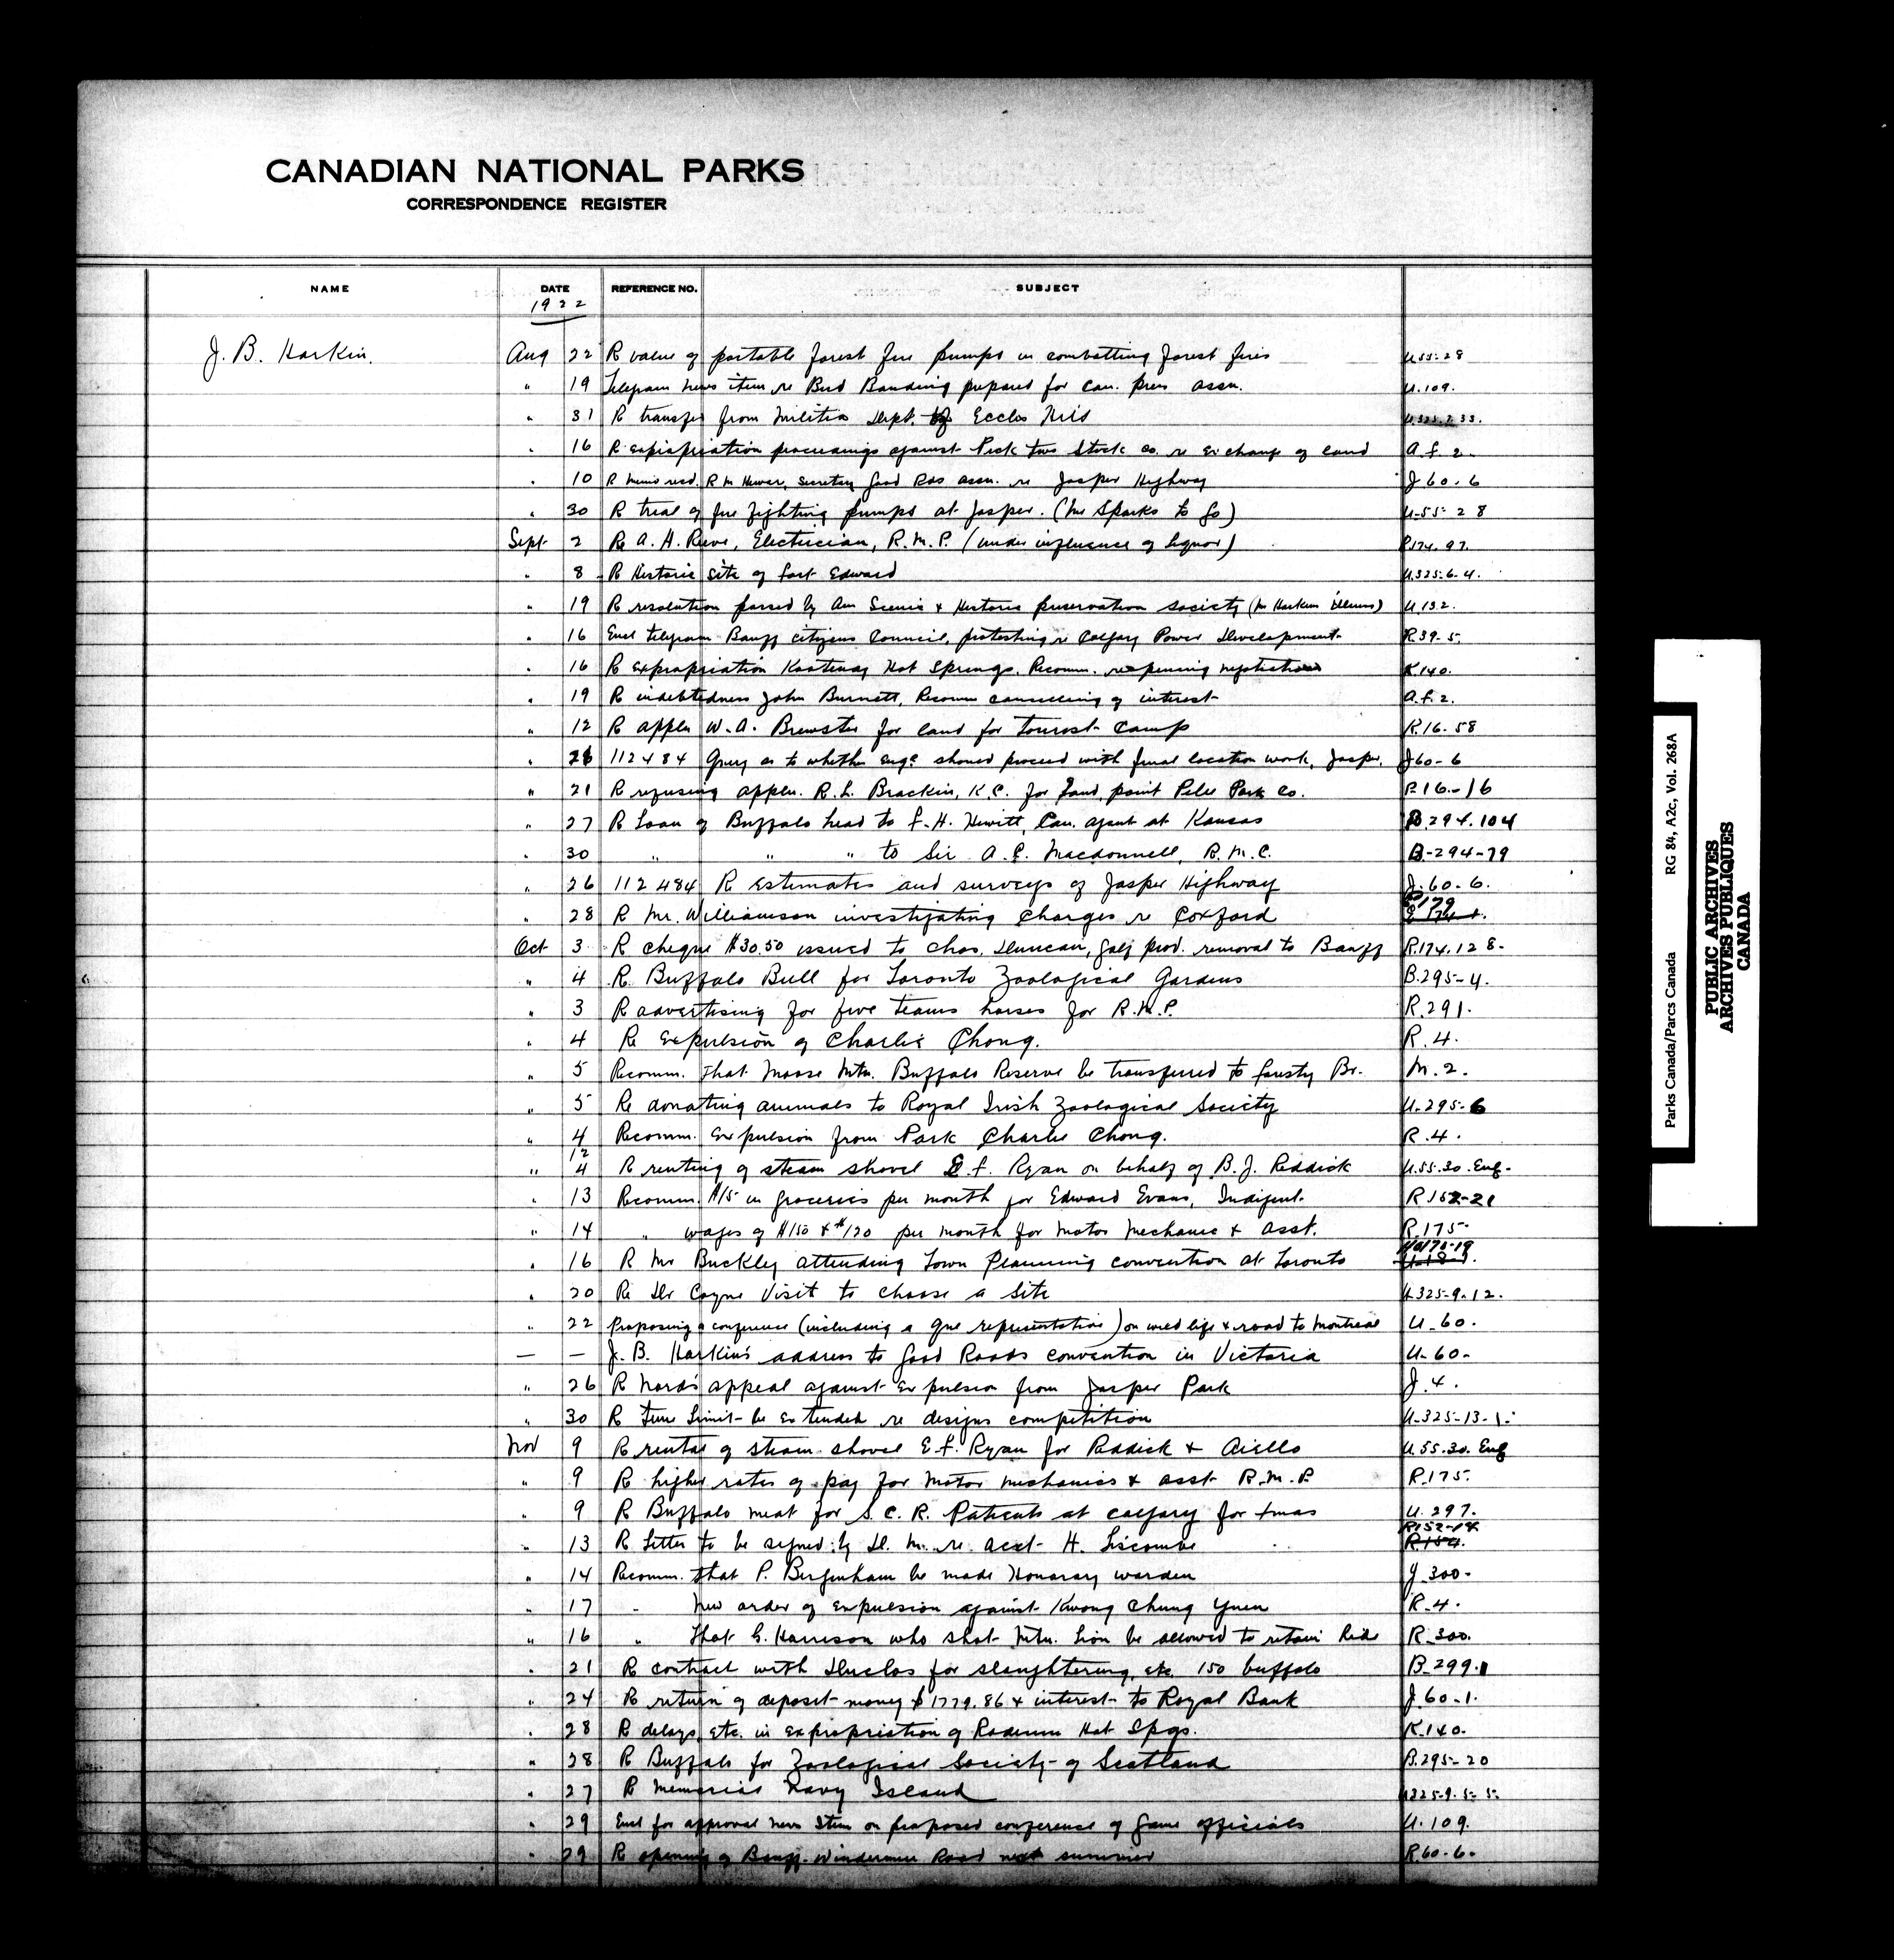 CANADIAN NATIONAL PARKS
CORRESPONDENCE REGISTER
NAME DATE REFERENCE NO. SUBJECT
1922
J. B. Harkin. Aug 22 R value of portable forest fire pumps in combatting forest fires U.55-28
" 19 Telegram news item re Bird Banding prepared for Can. press assn. U.109.
" 31 R transfer from Militia Dept. of Eccles Hill U.325.2.33.
" 16 R expropriation proceedings against Peck two Stock co. re exchange of land a.f.2.
" 10 R memo recd. R M Hewer, Secretary Good Rds assn. re Jasper Highway J60.6
" 30 R trial of fire fighting pumps at Jasper. (Mr Sparks to go) U-55-28
Sept 2 Re A. H. Reeve, Electrician, R.M.P. (under influence of liquor) R174.97.
" 8 R Historic site of Fort Edward U.325-6-4.
" 19 R resolution passed by Am Scenic & Historic preservation society (Mr Harkin ) U.132.
" 16 Encl telegram Banff citizens Council, protesting re Calgary Power Development R.39-5.
" 16 R expropriation Kootenay Hot Springs. Recomm. reopening negotiations K.140.
" 19 R indebtedness John Burnett, Recomm cancelling of interest a.f.2.
" 12 R applcn W. A. Brewster for land for tourist camp R.16.58
" 26 112484 Query as to whether engr. should proceed with final location work, Jasper. J60-6
" 21 R refusing applcn. R. L. Brackin, K.C. for land, point Pelee Park Co. P.16.-16
" 27 R Loan of Buffalo head to F. H. Hewitt, Can. agent at Kansas B.294.104
" 30 " " " to Sir A. C. Macdonnell, R.M.C. B-294-79
" 26 112484 R estimates and surveys of Jasper Highway J.60-6.
" 28 R Mr. Williamson investigating charges re Coxford 179
Oct 3 R cheque $30.50 issued to Chas. Duncan, prod. removal to Banff R.174.128-
" 4 R. Buffalo Bull for Toronto Zoological Gardens B.295-4.
" 3 R advertising for five teams horses for R.M.P. R.291.
" 4 Re Expulsion of Charlie Chong. R.4.
" 5 Recomm. that Moose Mtn. Buffalo Reserve be transferred to forestry Br. M.2.
" 5 Re donating animals to Royal Irish Zoological Society U-295-6
" 4 Recomm. Expulsion from Park Charlie Chong. R.4.
12
" 4 R renting of steam shovel E. F. Ryan on behalf of B. J. Reddick U.55.30.Eng-
" 13 Recomm. $15 in groceries per month for Edward Evans, Indigent R152-21
" 14 " wages of $150 & $120 per month for Motor Mechanic & asst. R.175-
" 16 R Mr Buckley attending Town Planning convention at Toronto
" 20 Re Dr Coyne Visit to choose a Site U325-9.12.
" 22 Proposing a conference (including a Que representative) on wild life & road to Montreal U-60.
— — J. B. Harkin's address to Good Roads convention in Victoria U-60-
" 26 R Nord's appeal against Expulsion from Jasper Park J.4.
" 30 R Time Limit be extended re designs competition U-325-13-1-
Nov 9 R rental of steam shovel E F. Ryan for Reddick & Aiello U.55.30.Eng
" 9 R higher rates of pay for Motor mechanics & asst R.M.P. R.175.
" 9 R Buffalo meat for S.C.R. Patients at calgary for xmas U.297.
R152-14
" 13 R Letter to be signed by D. M. re acct H. Liscombe R.154.
" 14 Recomm. that P. Bergenham be made Honorary warden J-300-
" 17 " New order of expulsion against Kwong Chung Yuen R-4.
" 16 " That G. Harrison who shot Mtn. Lion be allowed to retain hide R-300.
" 21 R contract with Duclos for slaughtering, etc. 150 buffalo B-299.1
" 24 R return of deposit money $1779.86 & interest to Royal Bank J.60-1.
" 28 R delays, etc. in expropriation of Radium Hot Spgs. K.140.
" 28 R Buffalo for Zoological Society of Scotland B.295-20
" 27 R Memorial Navy Island U325-9-5-5-
" 29 Encl for approval news Item on proposed conference of Game officials U.109.
" 29 R opening of Banff-Windermere Road next summer R.60-6.
Parks Canada/Parcs Canada RG 84, A2c, Vol. 268A
PUBLIC ARCHIVES
ARCHIVES PUBLIQUES
CANADA